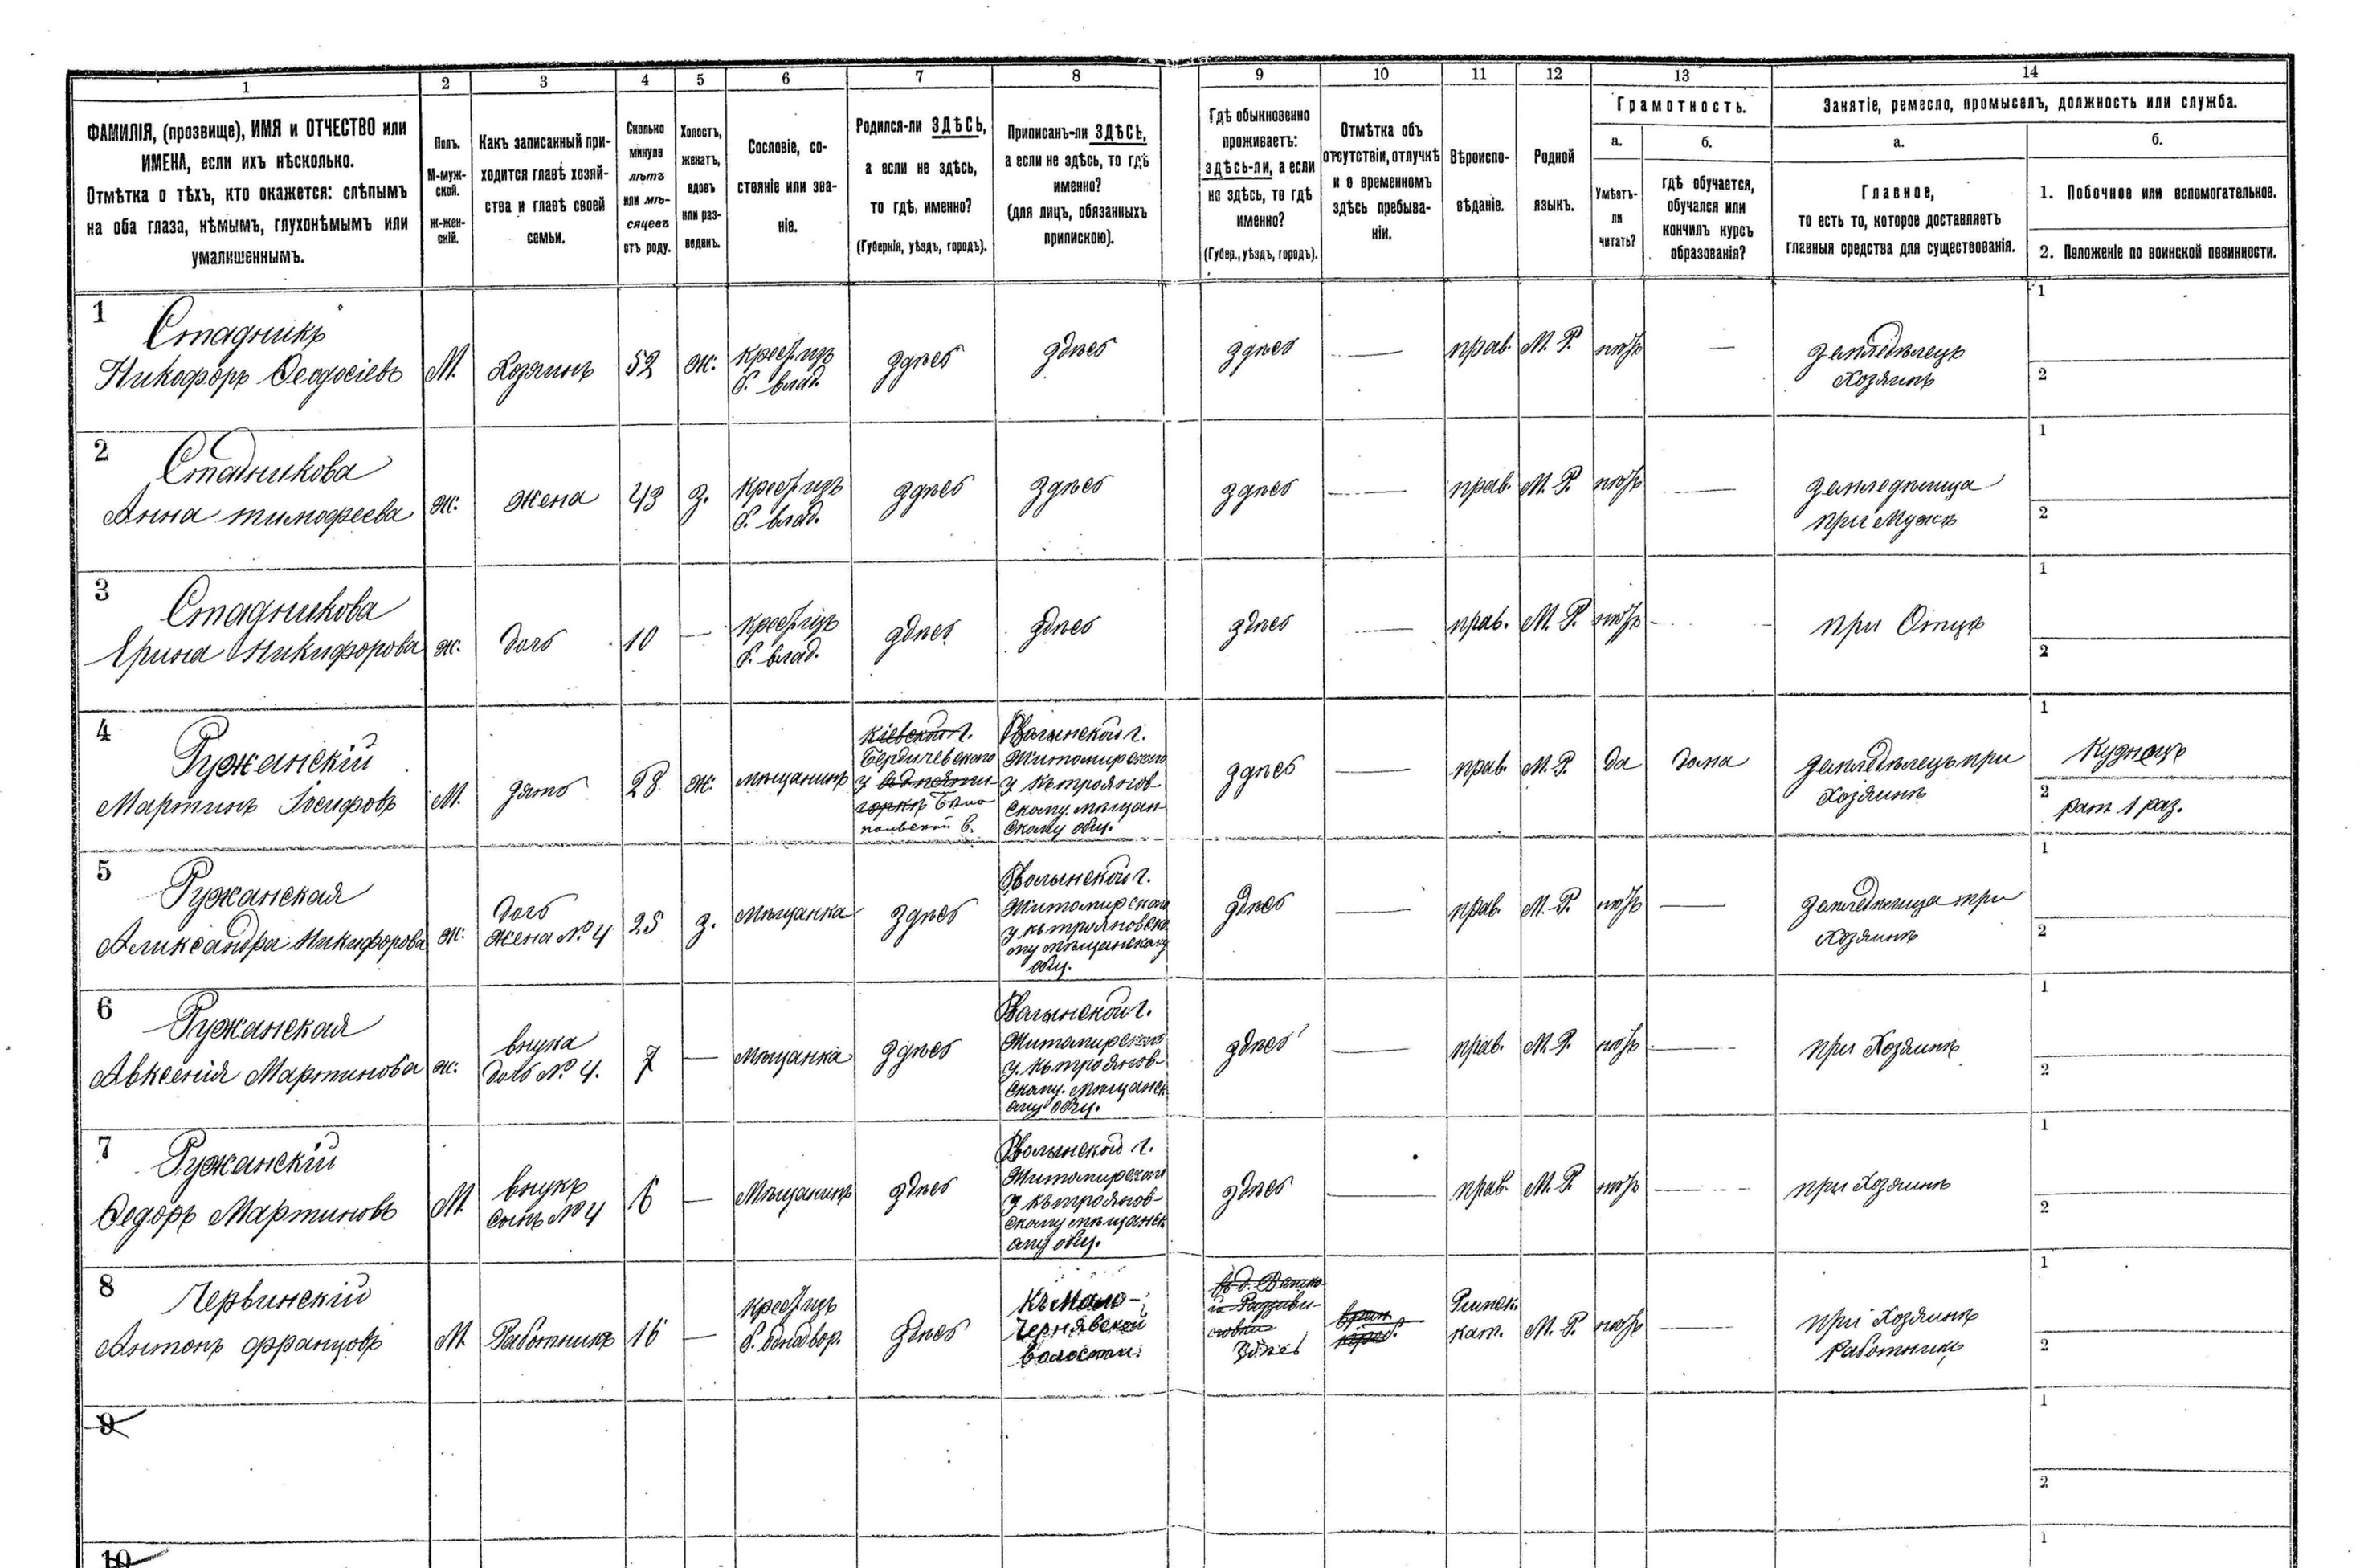 1 2 3 4 5 6 7 8 9 10 11 12 13 14
ФАМИЛІЯ, (прозвище), ИМЯ и ОТЧЕСТВО или
ИМЕНА, если ихъ нѣсколько.
Отмѣтка о тѣхъ, кто окажется: слѣпымъ
на оба глаза, нѣмымъ, глухонѣмымъ или
умалишеннымъ.
Полъ.
М-муж-
ской.
Ж-жен-
скій.
Какъ записанный при-
ходится главѣ хозяй-
ства и главѣ своей
семьи.
Сколько
минуло
лѣтъ
или мѣ-
сяцевъ
отъ роду.
Холостъ,
женатъ,
вдовъ
или раз-
веденъ.
Сословіе, со-
стояніе или зва-
ніе.
Родился-ли ЗДѢСЬ,
а если не здѣсь,
то гдѣ, именно?
(Губернія, уѣздъ, городъ).
Приписанъ-ли ЗДѢСЬ,
а если не здѣсь, то гдѣ
именно?
(для лицъ, обязанныхъ
припискою).
Гдѣ обыкновенно
проживаетъ:
здѣсь-ли, а если
не здѣсь, то гдѣ
именно?
(Губер., уѣздъ, городъ).
Отмѣтка объ
отсутствіи, отлучкѣ
и о временномъ
здѣсь пребыва-
ніи.
Вѣроиспо-
вѣданіе.
Родной
языкъ.
Грамотность.
а.
Умѣетъ-
ли
читать?
б.
гдѣ обучается,
обучался или
кончилъ курсъ
образованія?
Занятіе, ремесло, промыселъ, должность или служба.
а.
Главное,
то есть то, которое доставляетъ
главныя средства для существованія.
б.
1. Побочное или вспомогательное.
2. Положеніе по воинской повинности.
1
Стадникъ
Никофоръ Феодосіевъ
М.
Хозяинъ
52
ж.
крест. изъ
б. влад.
здѣсь
здѣсь
здѣсь
—
прав.
М. Р.
нѣтъ
—
земледѣлецъ
Хозяинъ
1
2
2
Стадникова
Анна тимофеева
ж.
жена
43
з.
крест. изъ
б. влад.
здѣсь
здѣсь
здѣсь
—
прав.
М. Р.
нѣтъ
—
земледѣлица
при Мужѣ
1
2
3
Стадникова
Ярина Никифорова
ж.
дочь
10
—
крест. изъ
б. влад.
здѣсь
здѣсь
здѣсь
—
прав.
М. Р.
нѣтъ
—
при Отцѣ
1
2
4
Ружанскій
Мартинъ Іосифовъ
М.
зять
28
ж.
мѣщанинъ
Кіевской г.
Бердичевскаго
у
польской в.
Волынской г.
Житомирскаго
у къ троянов-
скому мѣщан-
скому общ.
здѣсь
—
прав.
М. Р.
да
дома
земледѣлецъ при
Хозяинѣ
1
Кузнецъ
2
рат 1 раз.
5
Ружанская
Аликсандра Никифорова
ж.
дочь
жена № 4
25
з.
мѣщанка
здѣсь
Волынской г.
Житомирскаго
у къ трояновско
му мѣщанскому
общ.
здѣсь
—
прав.
М. Р.
нѣтъ
—
земледѣлица при
Хозяинѣ
1
2
6
Ружанская
Авксенія Мартинова
ж.
внука
дочь № 4.
7
—
мѣщанка
здѣсь
Волынской г.
Житомирскаго
у. къ троянов-
скому. мѣщанск
ому общ.
здѣсь
—
прав.
М. Р.
нѣтъ
—
при Хозяинѣ
1
2
7
Ружанскій
Федоръ Мартиновъ
М.
внукъ
сынъ № 4
6
—
Мѣщанинъ
здѣсь
Волынской г.
Житомирскаго
у къ троянов-
скому мѣщанск
ому общ.
здѣсь
—
прав.
М. Р.
нѣтъ
—
при Хозяинѣ
1
2
8
Червинскій
Антонъ францовъ
М.
Работникъ
16
—
крест. изъ
б. однодвор.
здѣсь
Къ Мало-
Чернявской
волости.
здѣсь
Римск.
кат.
М. Р.
нѣтъ
—
при Хозяинѣ
Работникъ
1
2
9
1
2
10
1